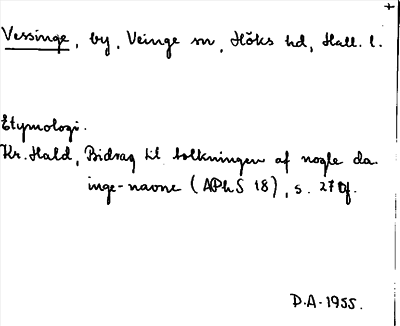 +
Vessinge, by, Veinge sn, Höks hd, Hall. l.
Etymologi.
Kr. Hald, Bidrag til tolkningen af nogle da.
inge-navne (APhS 18), s. 270f.
D.A. 1955.